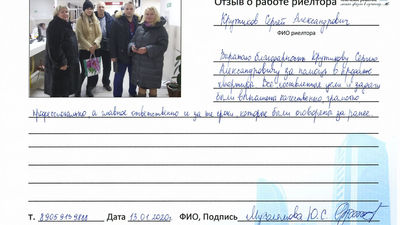 Отзыв о работе риелтора
Крутиков Сергей Александрович
ФИО риелтора
Выражаю благодарность Крутикову Сергею
Александровичу за помощь в продаже
квартиры. Все поставленные цели и задачи
были выполнены качественно, грамотно
профессионально и главное ответственно и за те сроки которые были оговорены за ранее.
т. 89059159888 Дата 13.01.2020г. ФИО, Подпись Ю.С.